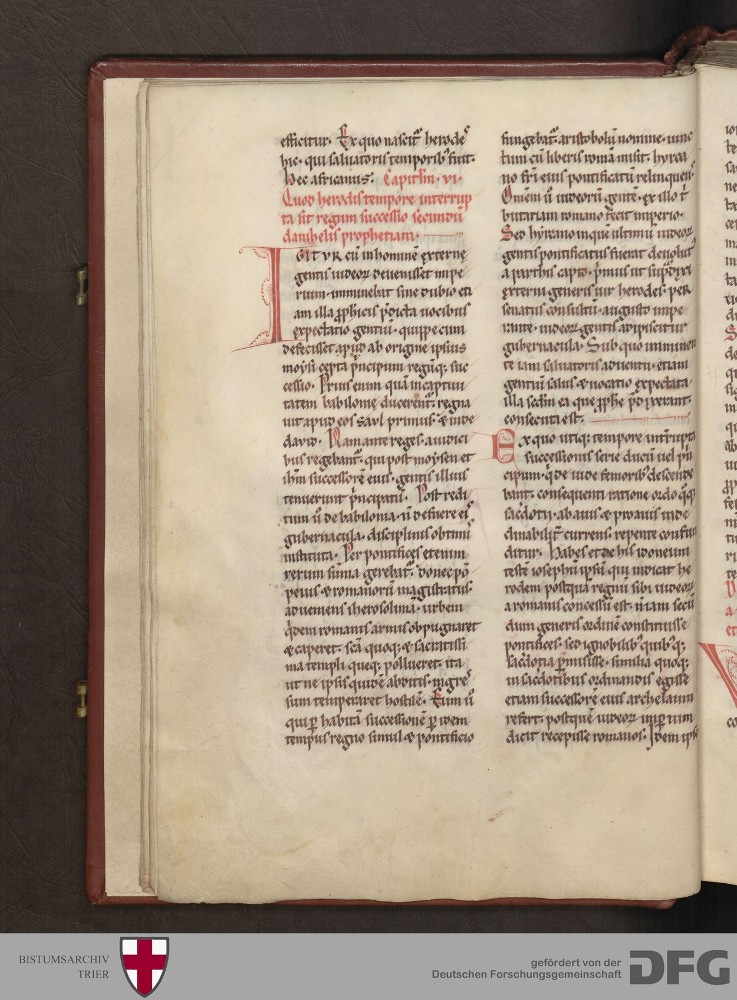 efficitur. Ex quo nascit᷑ herodeˢ
hic. qui saluatoris temporibꝰ fuit.
Hec africanus. Capitłm. vi.
Quod herodis tempore interrup
ta sit regum successio secundū
danihelis prophetiam.
IGITVR cū in hominē externę
gentis iudeoꝝ deuenisset impe
rium. imminebat sine dubio eti
am illa ꝓphicis p̄dicta uocibus
expectatio gentiū. quippe cum
defecisset apud ab origine ipsius
moysi cepta p̄ncipum regūq; suc
cessio. Prius enim quā in captiui
tatem babilonię ducerent᷑. regna
uit apud eos saul primus. & inde
dauid. Nam ante reges a iudici
bus regebant᷑. qui post moysen et
ihm̄ successorē eius. gentis illius
tenuerunt p̄ncipatū. Post redi
tum ū de babilonia. ū defuere eiˢ
gubernacula. disciplinis obtimiˢ
instituta. Per pontifices etenim
rerum sūma gerebat᷑. donec pō
peius & romanorū magistratus.
adueniens iherosolimā. urbem
q̇dem romanis armis obpugnaret
& caperet. scā quoq; & sacratissi
ma templi queq; pollueret. ita
ut ne ipsis quidē abditis. ingreſ
sum temperaret hostilē. Eum ū
qui ꝑ habitā successionē ꝑ idem
tempus regno simul & pontificio
fungebat᷑. aristobolū nomine. uinc
tum cū liberis romā misit. hyrca
no fr̄i eius pontificatū relinquenˢ
Omēm ū iudeorū gentē. ex illo t̄
butariam romano fecit imperio.
Sed hyrcano in quē ultimū iudeoꝝ
gentis pontificatus fuerat deuolutꝰ
a parthis capto. p̄mus ut sup̄ dixi
externi generis uir herodes. per
senatus consultū. augusto impe
rante. iudeoꝝ gentis adipiscitur
gubernacula. Sub quo imminen
te iam saluatoris aduentu. etiam
gentiū salus & uocatio expectata
illa scdm̄ ea que ꝓphe p̄dixerant.
consecuta est.
Ex quo utiq; tempore int᷑rupta
successionis serie ducū uel p̄n
cipum. q̇ de iude femoribꝰ descende
bant. consequenti ratione ordo q̊q;
sacdotū. ab auis & proauis inde
clinabilit᷑ currens. repente confun
ditur. Habes et de his idoneum
testē iosephū ipsū. qui indicat he
rodem postquā regnū sibi iudeoꝝ
a romanis concessū est. n̄ iam secū
dum generis ordinē constituisse
pontifices. sed ignobilibꝰ quibꝰq;
sacdotia p̄misisse. similia quoq;
in sacdotibus ordinandis egisse
etiam successorē eius archelaum
refert. postquē iudeoꝝ imperium
dicit recepisse romanos. Idem ipse
BISTUMSARCHIV
TRIER
gefördert von der
Deutschen Forschungsgemeinschaft
DFG